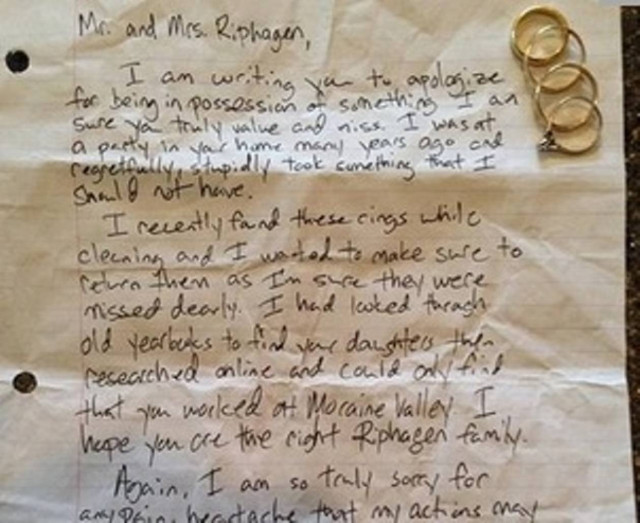 Mr. and Mrs. Riphagen,
I am writing you to apologize
for being in possession of something I am
sure you truly value and miss. I was at
a party in your home many years ago and
regretfully, stupidly took something that I
should not have.
I recently found these rings while
cleaning and I wanted to make sure to
return them as I'm sure they were
missed dearly. I had looked through
old yearbooks to find your daughters then
researched online and could only find
that you worked at Moraine Valley. I
hope you are the right Riphagen family.
Again, I am so truly sorry for
any pain, heartache that my actions may